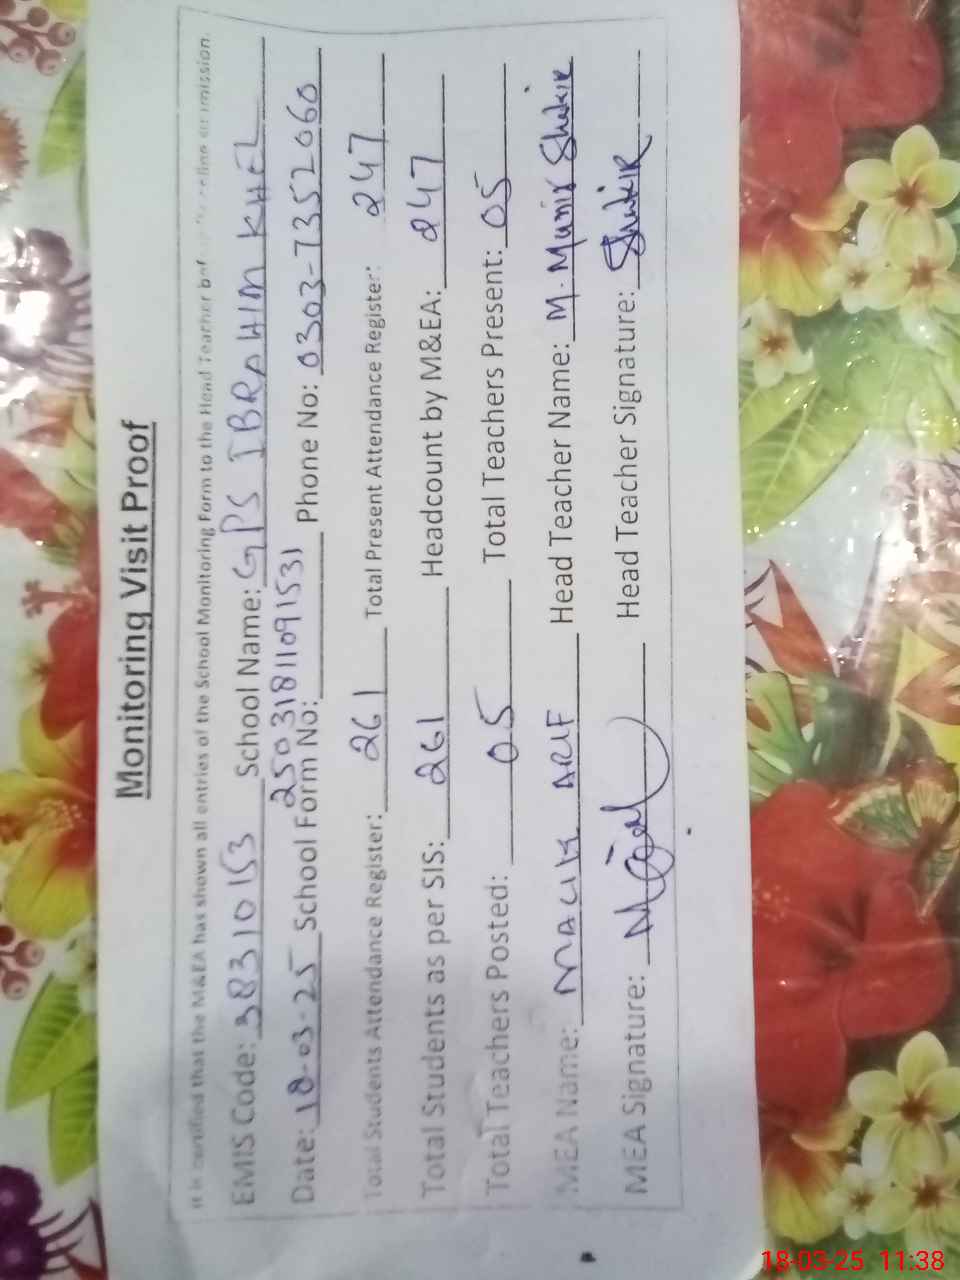 Monitoring Visit Proof
It is certified that the M&EA has shown all entries of the School Monitoring Form to the Head Teacher before submission.
EMIS Code: 38310153 School Name: GPS IBRAHIM KHEL
Date: 18-03-25 School Form No: 25031811091531 Phone No: 0303-7352060
Total Students Attendance Register: 261 Total Present Attendance Register: 247
Total Students as per SIS: 261 Headcount by M&EA: 247
Total Teachers Posted: 05 Total Teachers Present: 05
MEA Name: MALIK ARIF Head Teacher Name: M. Munir Shakir
MEA Signature: Head Teacher Signature: Shakir
18-03-25 11:38